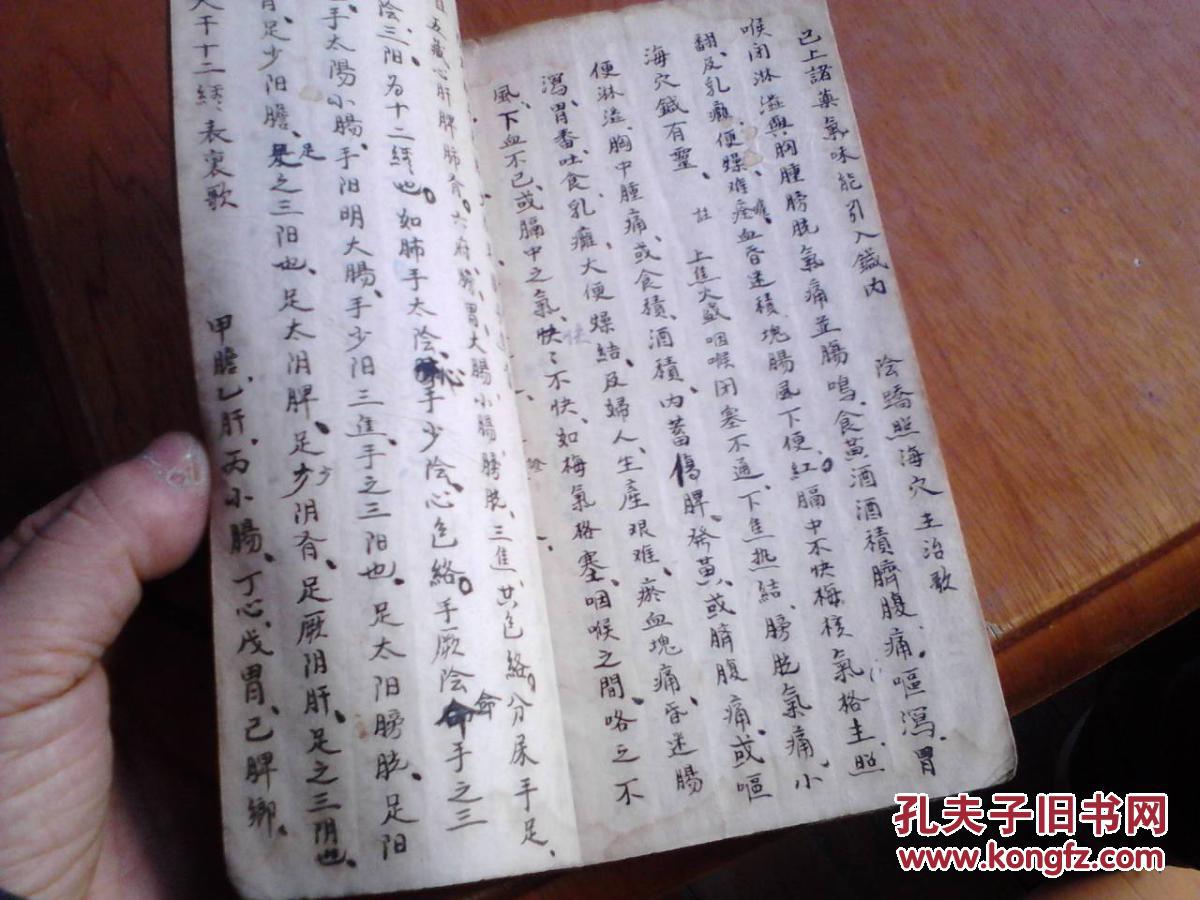 已上諸薬氣味能引入鍼内　陰蹻照海穴主治歌
喉闭淋澁與胸腫膀胱氣痛並腸鳴、食黄酒積臍腹痛、嘔瀉、胃
翻、及乳癰便燥难産血昏迷積塊腸風下便紅。膈中不快梅核氣格主照
海穴鍼有靈、註 上焦火盛咽喉闭塞不通、下焦热結、膀胱氣痛、小
便淋澁、胸中腫痛、或食積、酒積、内蓄傷脾、發黄、或臍腹痛、或嘔
瀉、胃番吐食、乳癰、大便燥結、及婦人、生產艰难、瘀血塊痛、昏迷腸
風、下血不已、或膈中之氣、快〻不快、如梅氣格塞、咽喉之間、咯之不
五藏心肝脾肺肾。六府 胃、大腸小腸、膀胱、三焦、共包絡。分屎手足、
陰三阳为十二經也。如肺手太陰、心手少陰、心包絡。手厥陰命手之三
手太陽小腸、手阳明大腸、手少阳三焦、手之三阳也、足太阳膀胱、足阳
足少阳膽、足之三阳也、足太阴脾、足少阴肾、足厥阴肝、足之三阴也、
天干十二經表裏歌　甲膽、乙肝、丙小腸、丁心、戊胃、己脾鄉、
孔夫子旧书网
www.kongfz.com